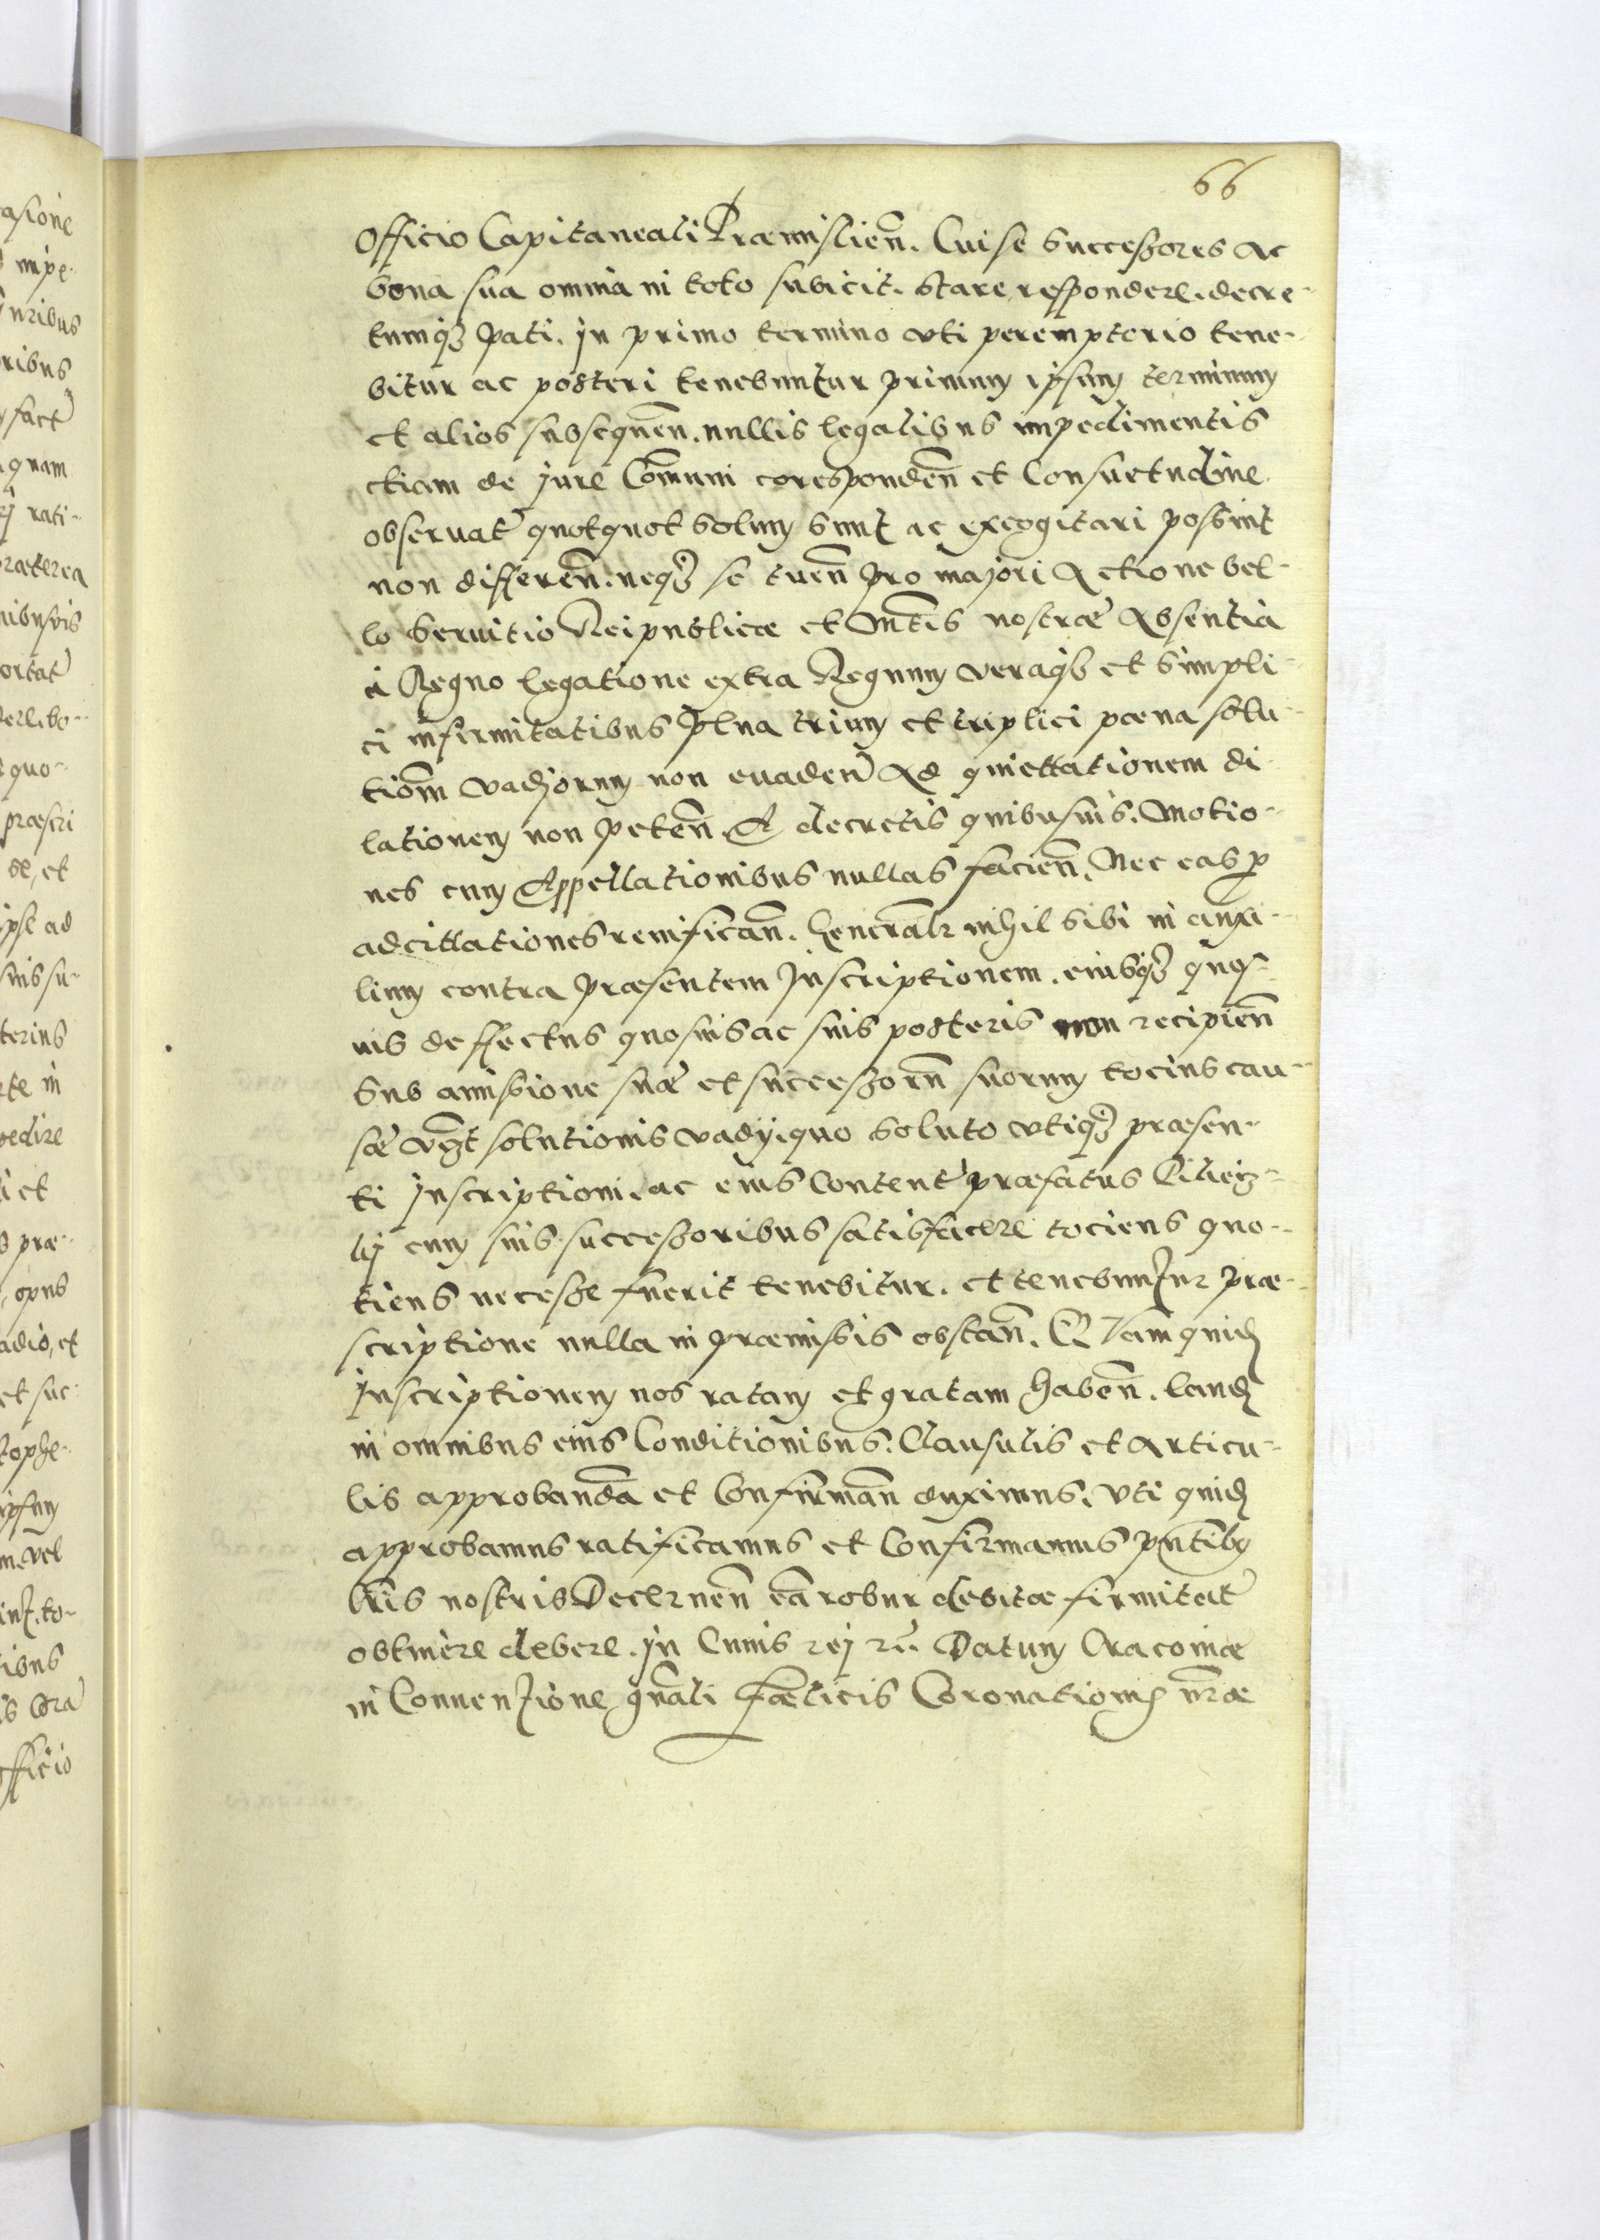 66
Officio Capitaneali Præmislien̄. Cui se Successores ac
bona sua omnia in toto subicit. Stare respondere. decre-
tumq₃ pati. In primo termino uti peremptorio tene-
bitur ac posteri tenebuntur primum ipsum terminum
et alios subsequen̄. nullis legalibus impedimentis
etiam de jure Com̄uni coresponden̄ et Consuetudine
obseruat̄ quotquot solum sunt ac excogitari possint
non differen̄. neq₃ se tuen̄ pro majori Actione bel-
lo Seruitio Reipublicæ et Mtīs nostræ Absentia
a Regno legatione extra Regnum veraq₃ et simpli-
ci infirmitatibus plna trium et triplici pœna solu-
tiom̄ vadiorum non euaden̄ Ad quiettationem di-
lationem non peten̄. A decretis quibusuis. Motio-
nes cum Appellationibus nullas facien̄. Nec eas p
adcitationes reinfican̄. Generalr nihil sibi in auxi-
lium contra præsentem Inscriptionem. eiusq₃ quos-
uis deffectus quosuis ac suis posteris non recipien̄
Sub amissione suæ et successorū suorum tocius cau-
sæ solutionis vadij. quo soluto utiq₃ præsen-
ti Inscriptioni. ac eius Content̄ præfatus
cum suis successoribus satisfacere tociens quo-
tiens necesse fuerit tenebitur. et tenebuntur præ-
scriptione nulla in præmissis obstan̄. Q Tam quid
Inscriptionem nos ratam et gratam haben̄. eand
in omnibus eius Conditionibus. Clausulis et Articu-
lis approbandā et Confirman̄ duximus. Uti quid
approbamus ratificamus et Confirmamus pn̄tibus
lr̄is nostris Decernen̄ eā robur debitæ firmitat̄
obtinere debere. In Cuius rej rū Datum Cracoviæ
in Conuentione gn̄ali fœlicis Coronationis nr̄æ